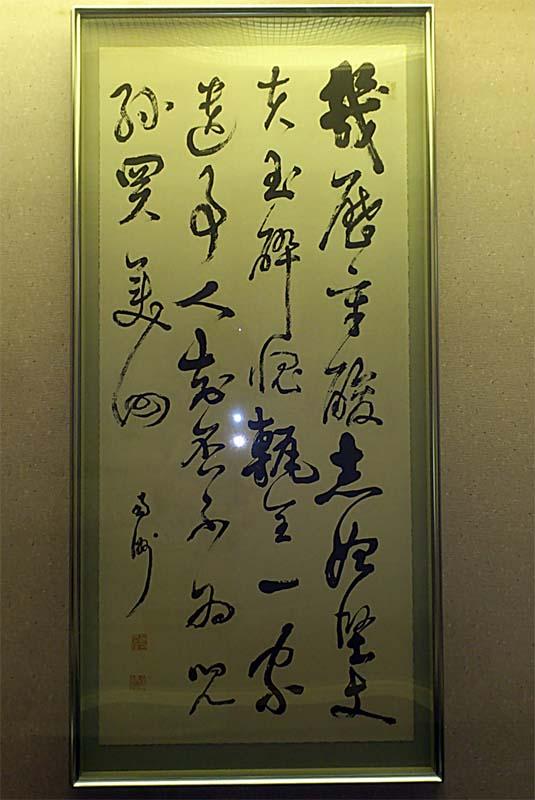 幾歴辛酸志始堅丈
夫玉碎愧甎全一家
遺事人知否不為兒
孫買美田
南洲